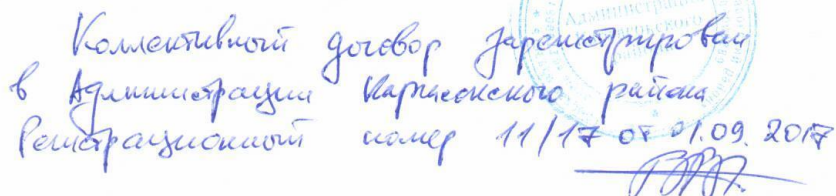 Коллективный договор зарегистрирован
в Администрации Каргасокского района
Регистрационный номер 11/17 от 01.09.2017